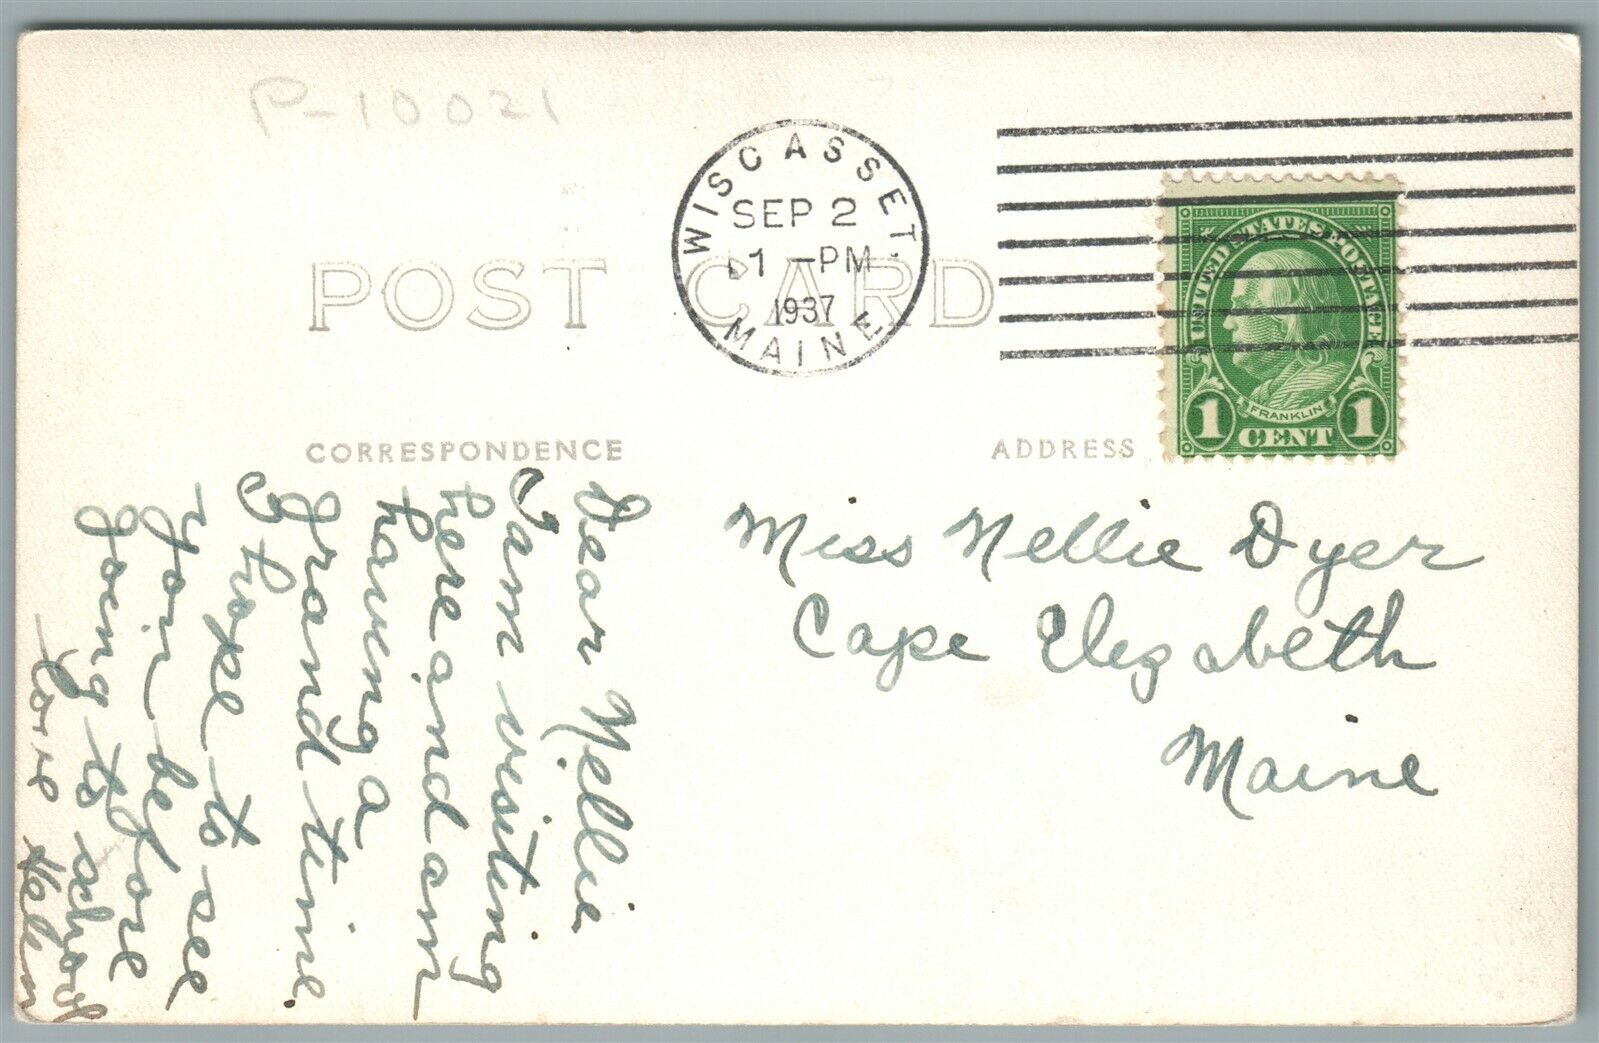 P-10021
WISCASSET,
SEP 2
1 - PM
1937
MAINE
UNITED STATES POSTAGE
FRANKLIN
1 CENT 1
POST CARD
CORRESPONDENCE
ADDRESS
Dear Nellie
I am visiting
here and am
having a
grand time
I hope to see
you before
going to school
Love Helen
Miss Nellie Dyer
Cape Elezabeth
Maine